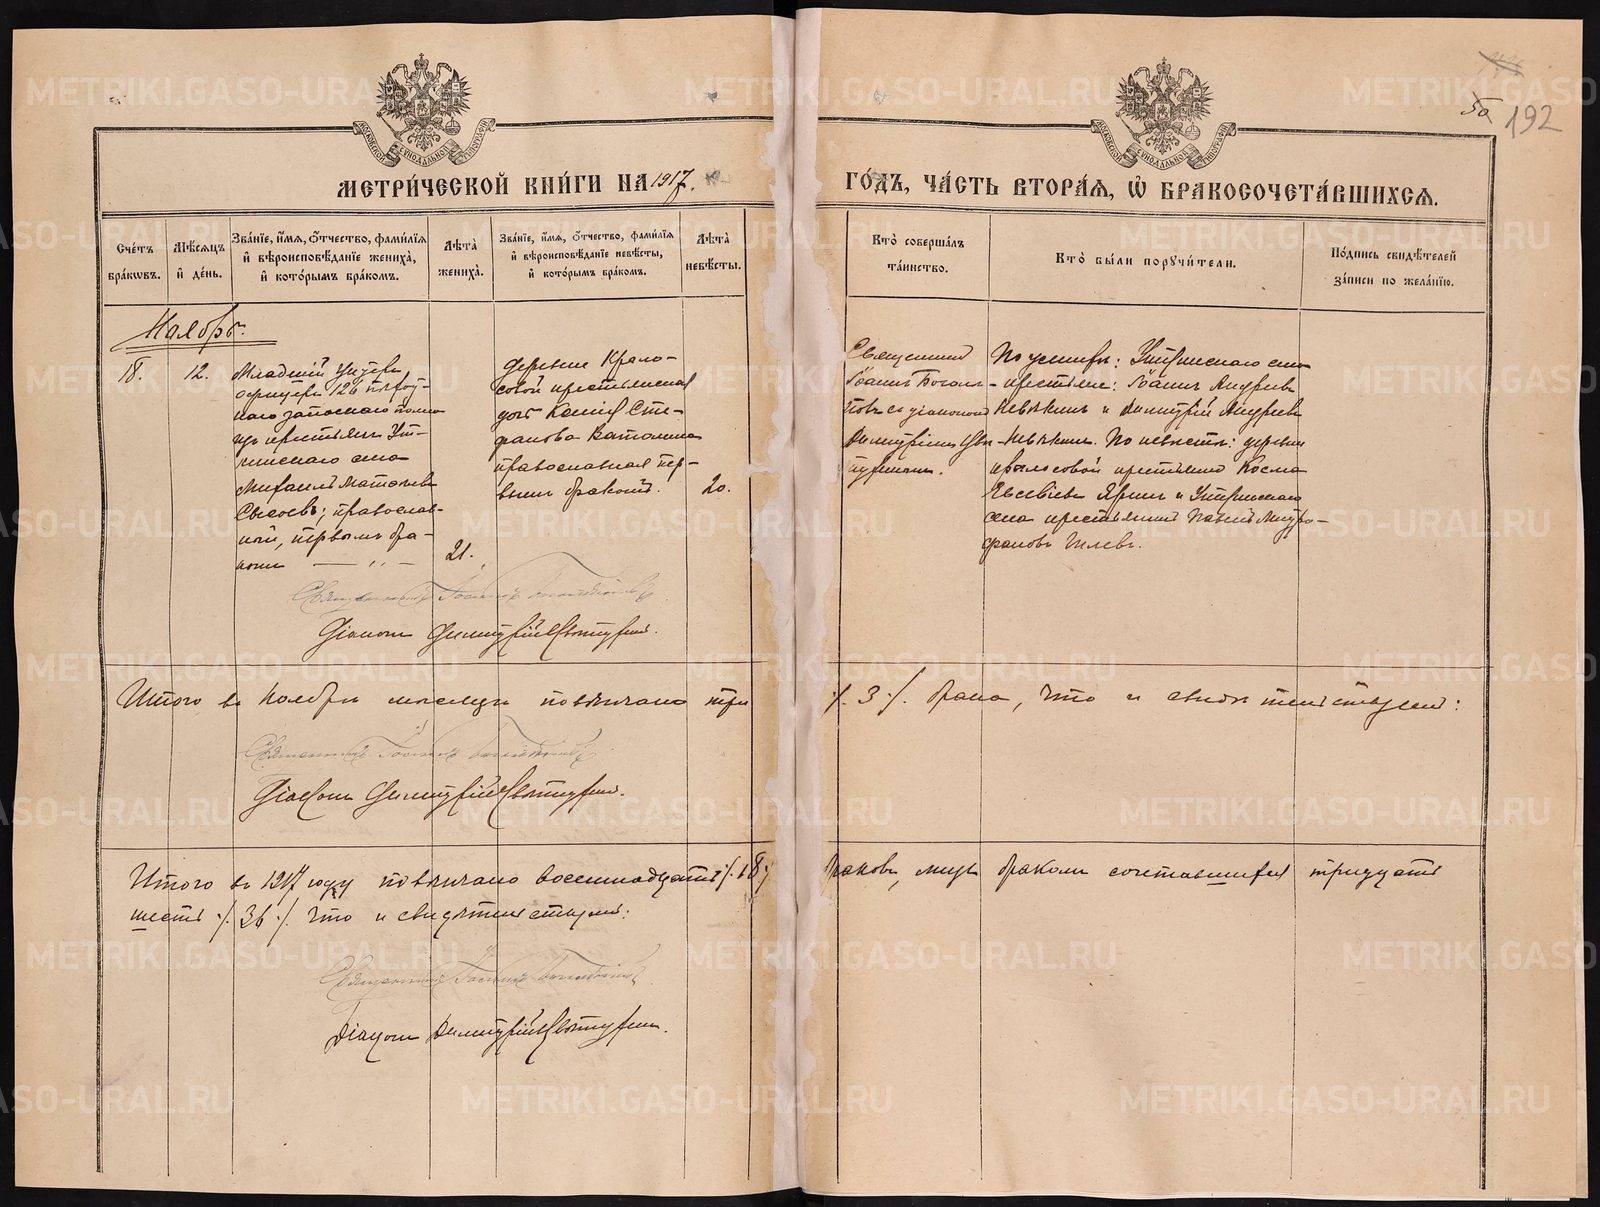 192
МЕТРИ́ЧЕСКОЙ КНИ́ГИ НА 1917.
ГО́ДЪ, ЧА́СТЬ ВТОРА́Я, Ѿ БРАКОСОЧЕТА́ВШИХСЯ.
Сче́тъ бра́кωвъ.
Мѣ́сяцъ и҆ де́нь.
Зва́нїе, и҆́мя, ѻ҆́тчество, фами́лїя и҆ вѣроисповѣ́данїе жениха̀, и҆ кото́рымъ бра́комъ.
Лѣта̀ жениха̀.
Зва́нїе, и҆́мя, ѻ҆́тчество, фами́лїя и҆ вѣроисповѣ́данїе невѣ́сты, и҆ кото́рымъ бра́комъ.
Лѣта̀ невѣ́сты.
Кто̀ соверша́лъ та́инство.
Кто̀ бы́ли порꙋчи́тели.
По́дпись свидѣ́телей за́писи по жела́нїю.
Ноябрь.
18.
12.
Младшій Унтеръ
офицеръ 126 пѣхот-
наго запаснаго полка
изъ крестьянъ Ут-
кинскаго села
Михаилъ Матѳіевъ
Сысоевъ; православ-
ный, первымъ бра-
комъ
21.
деревни Крыло-
совой крестьянская
дочь Ксенія Сте-
фанова Ватолина
православная пер-
вымъ бракомъ.
20.
Священникъ
Іоаннъ Боголю-
бовъ съ діакономъ
Димитріемъ
По женихѣ: Уткинскаго села
крестьяне: Іоаннъ Андреевъ
и Димитрій Андреевъ
По невѣстѣ: деревни
Крылосовой крестьянинъ Косма
Евсевіевъ Яринъ и Уткинскаго
села крестьянинъ Павелъ Митро-
фановъ
Священникъ Іоаннъ Боголюбовъ
Діаконъ Димитрій
Итого въ Ноябрѣ мѣсяцѣ повѣнчано три
./. 3 ./. брака, что и свидѣтельствуемъ:
Священникъ Іоаннъ Боголюбовъ
Діаконъ Димитрій
Итого въ 1917 году повѣнчано восемнадцать ./. 18 ./.
браковъ, лицъ бракомъ сочетавшихся тридцать
шесть ./. 36 ./. что и свидѣтельствуемъ:
Священникъ Іоаннъ Боголюбовъ
Діаконъ Димитрій
METRIKI.GASO-URAL.RU